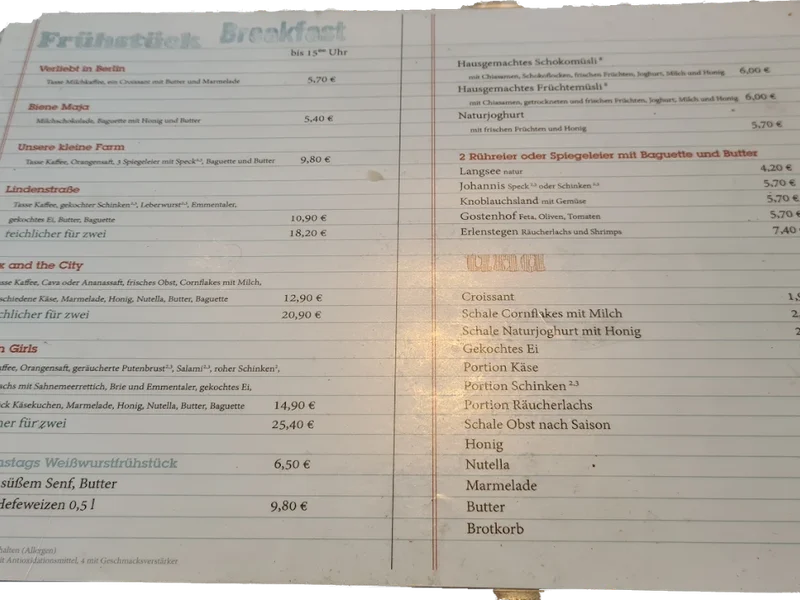 Frühstück Breakfast
bis 15⁰⁰ Uhr
Verliebt in Berlin
Tasse Milchkaffee, ein Croissant mit Butter und Marmelade 5,70 €
Biene Maja
Milchschokolade, Baguette mit Honig und Butter 5,40 €
Unsere kleine Farm
Tasse Kaffee, Orangensaft, 3 Spiegeleier mit Speck, Baguette und Butter 9,80 €
Lindenstraße
Tasse Kaffee, gekochter Schinken²,³, Leberwurst²,³, Emmentaler,
gekochtes Ei, Butter, Baguette 10,90 €
reichlicher für zwei 18,20 €
and the City
Kaffee, Cava oder Ananassaft, frisches Obst, Cornflakes mit Milch,
Käse, Marmelade, Honig, Nutella, Butter, Baguette 12,90 €
für zwei 20,90 €
Girls
Orangensaft, geräucherte Putenbrust²,³, Salami²,³, roher Schinken,
mit Sahnemeerrettich, Brie und Emmentaler, gekochtes Ei,
Käsekuchen, Marmelade, Honig, Nutella, Butter, Baguette 14,90 €
für zwei 25,40 €
Weißwurstfrühstück 6,50 €
süßem Senf, Butter
Hefeweizen 0,5 l 9,80 €
(Allergen)
mit Antioxidationsmittel, 4 mit Geschmacksverstärker
Hausgemachtes Schokomüsli
mit Chiasamen, Schokoflocken, frischen Früchten, Joghurt, Milch und Honig 6,00 €
Hausgemachtes Früchtemüsli
mit Chiasamen, getrockneten und frischen Früchten, Joghurt, Milch und Honig 6,00 €
Naturjoghurt
mit frischen Früchten und Honig 5,70 €
2 Rühreier oder Spiegeleier mit Baguette und Butter
Langsee natur 4,20 €
Johannis Speck oder Schinken 5,70 €
Knoblauchsland mit Gemüse 5,70 €
Gostenhof Feta, Oliven, Tomaten 5,70 €
Erlenstegen Räucherlachs und Shrimps 7,40
Croissant
Schale Cornflakes mit Milch
Schale Naturjoghurt mit Honig
Gekochtes Ei
Portion Käse
Portion Schinken ²,³
Portion Räucherlachs
Schale Obst nach Saison
Honig
Nutella
Marmelade
Butter
Brotkorb